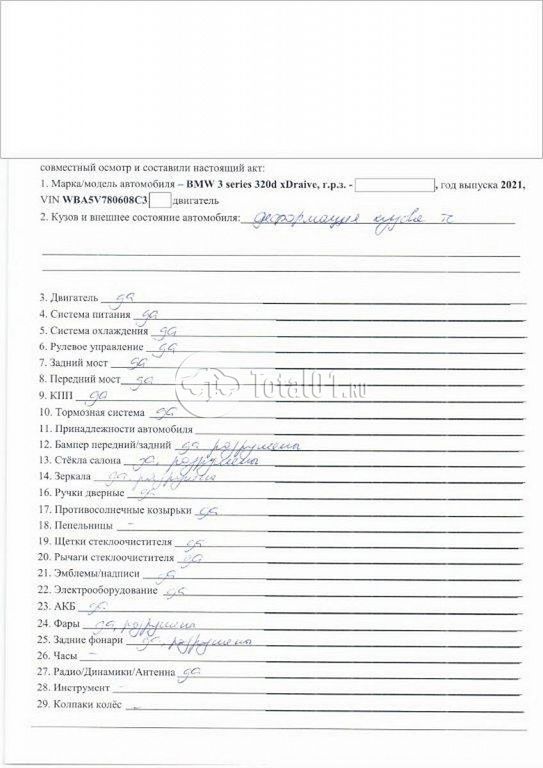 совместный осмотр и составили настоящий акт:
1. Марка/модель автомобиля – BMW 3 series 320d xDraive, г.р.з. - , год выпуска 2021,
VIN WBA5V780608C3 двигатель
2. Кузов и внешнее состояние автомобиля: деформация кузова тс
3. Двигатель да
4. Система питания да
5. Система охлаждения да
6. Рулевое управление да
7. Задний мост да
8. Передний мост да
9. КПП да
Total01.ru
10. Тормозная система да
11. Принадлежности автомобиля
12. Бампер передний/задний да разрушены
13. Стёкла салона да, разрушены
14. Зеркала да, разрушены
16. Ручки дверные да
17. Противосолнечные козырьки да
18. Пепельницы -
19. Щетки стеклоочистителя да
20. Рычаги стеклоочистителя да
21. Эмблемы/надписи да
22. Электрооборудование да
23. АКБ да
24. Фары да, разрушены
25. Задние фонари да, разрушены
26. Часы -
27. Радио/Динамики/Антенна да
28. Инструмент -
29. Колпаки колёс -